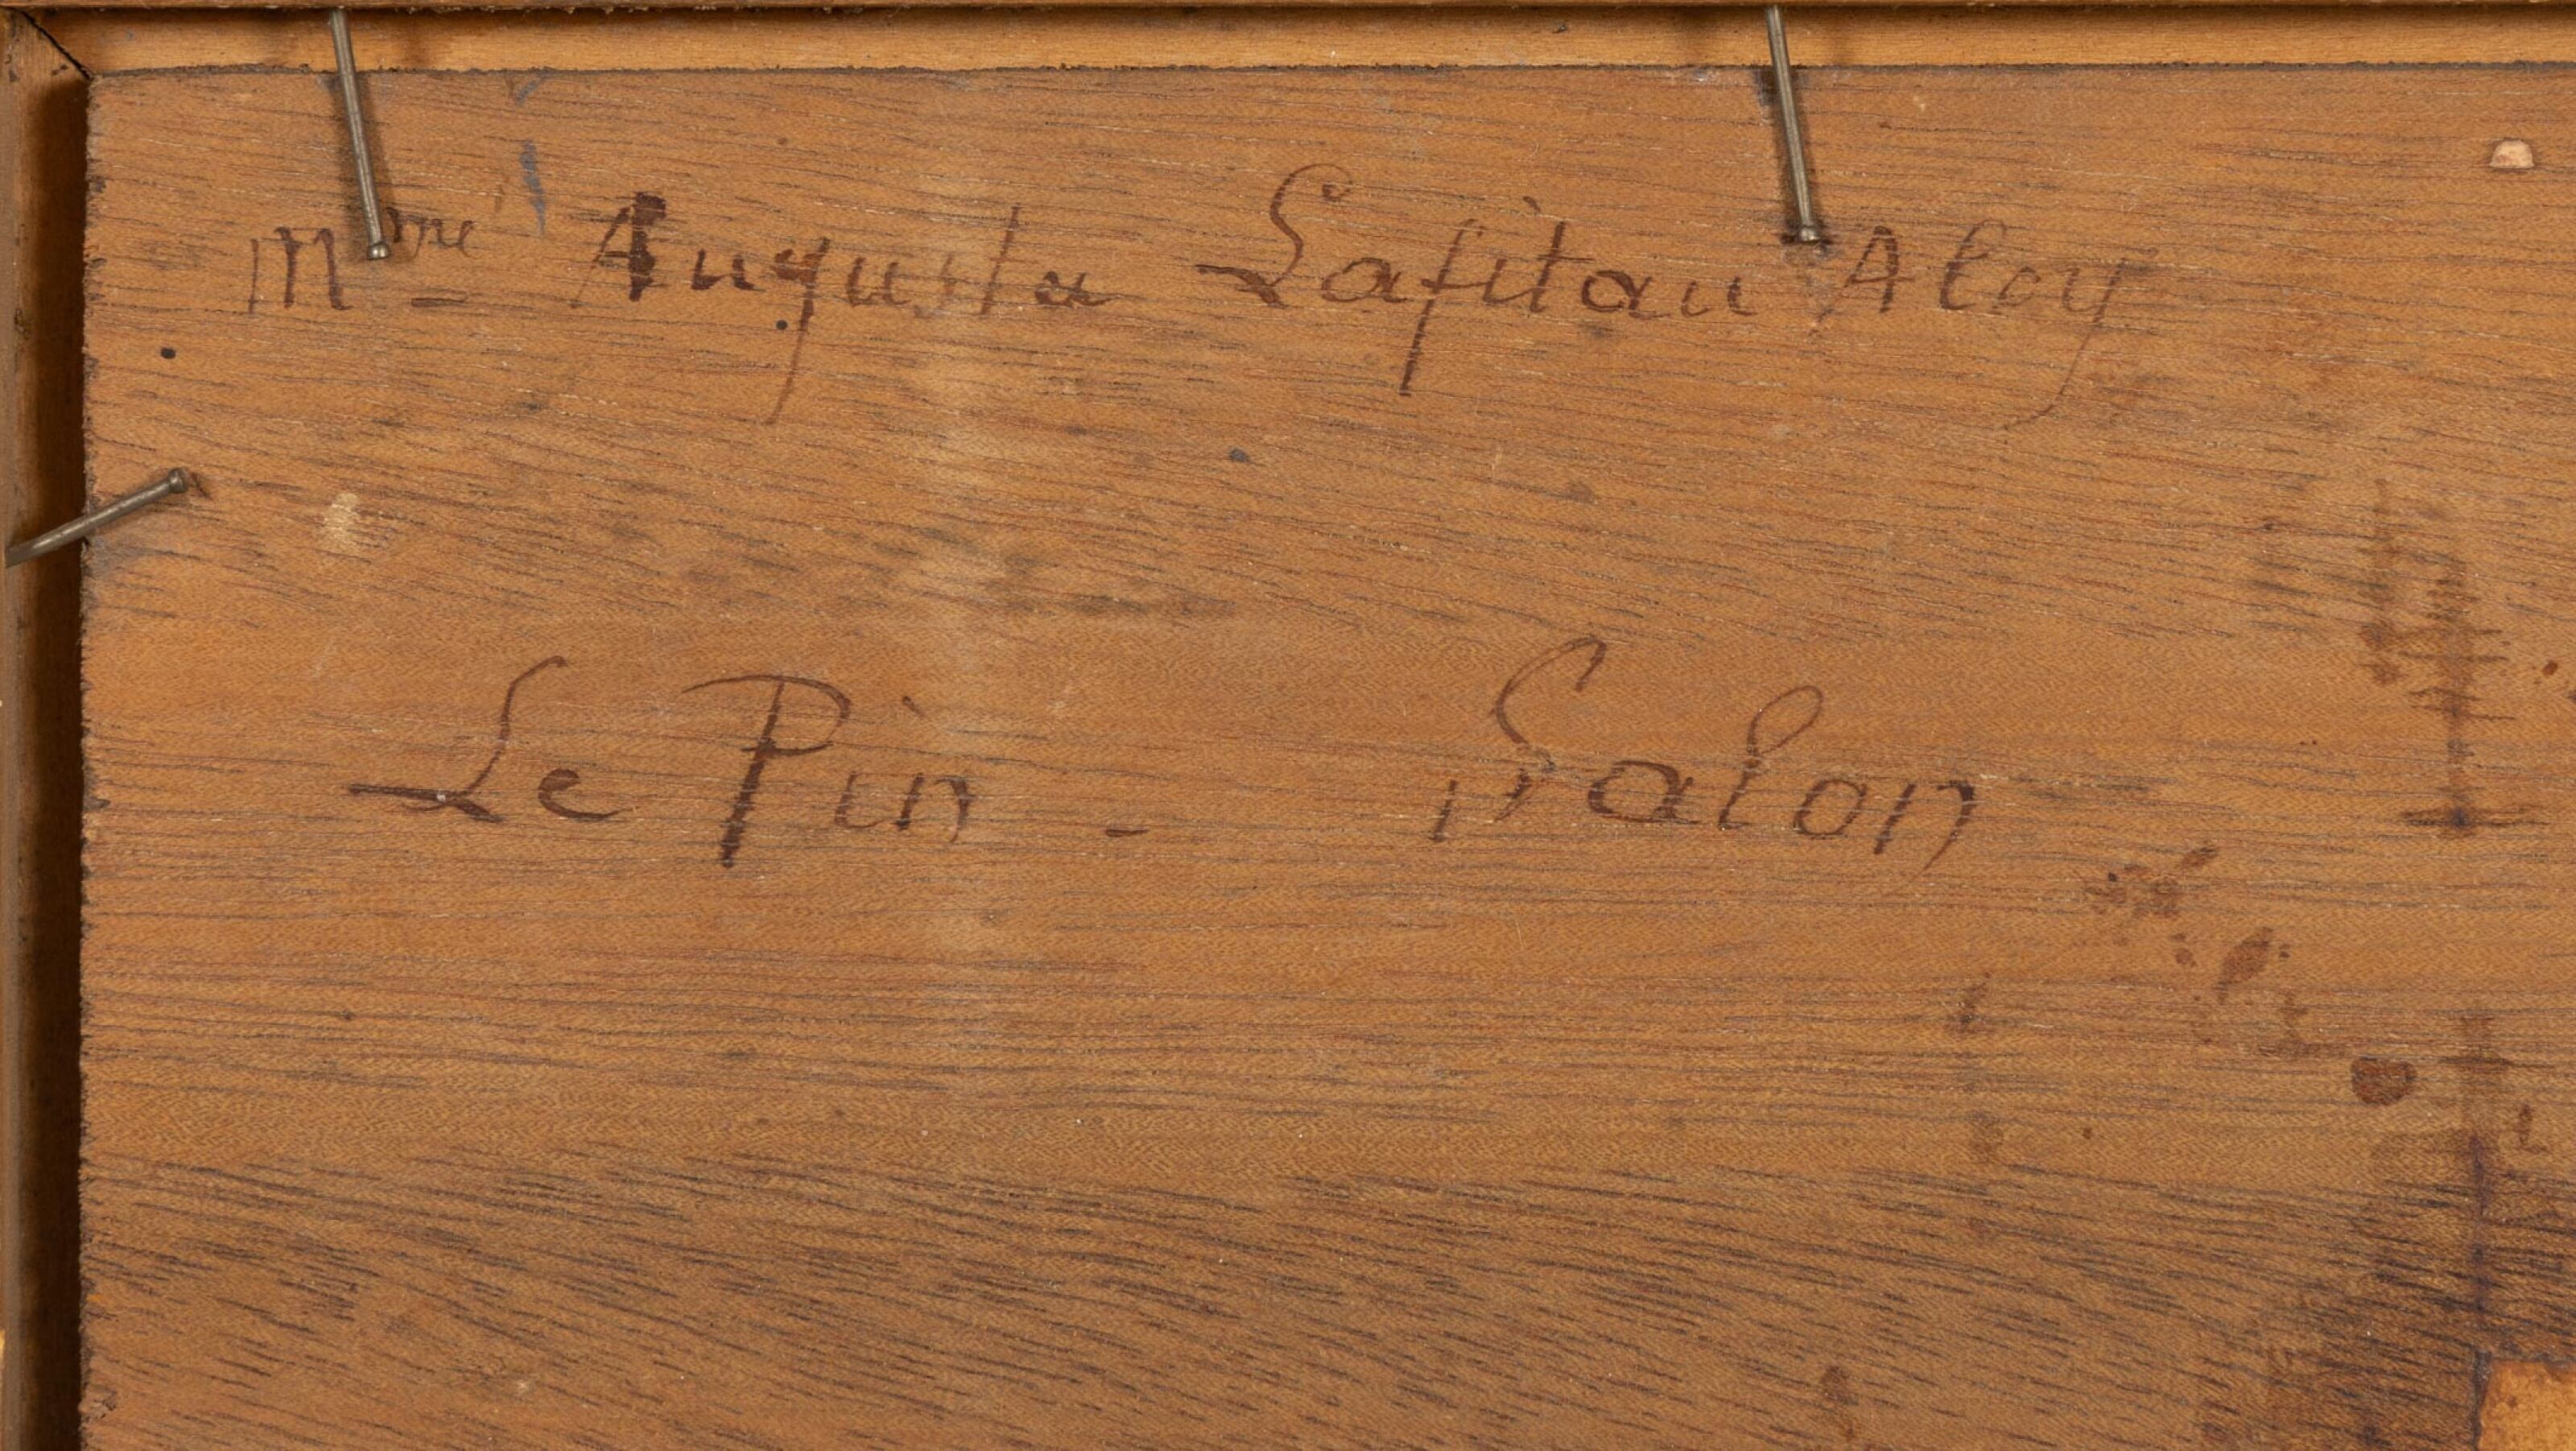 Mme Augusta Lafitau Aloy
Le Pin - Salon